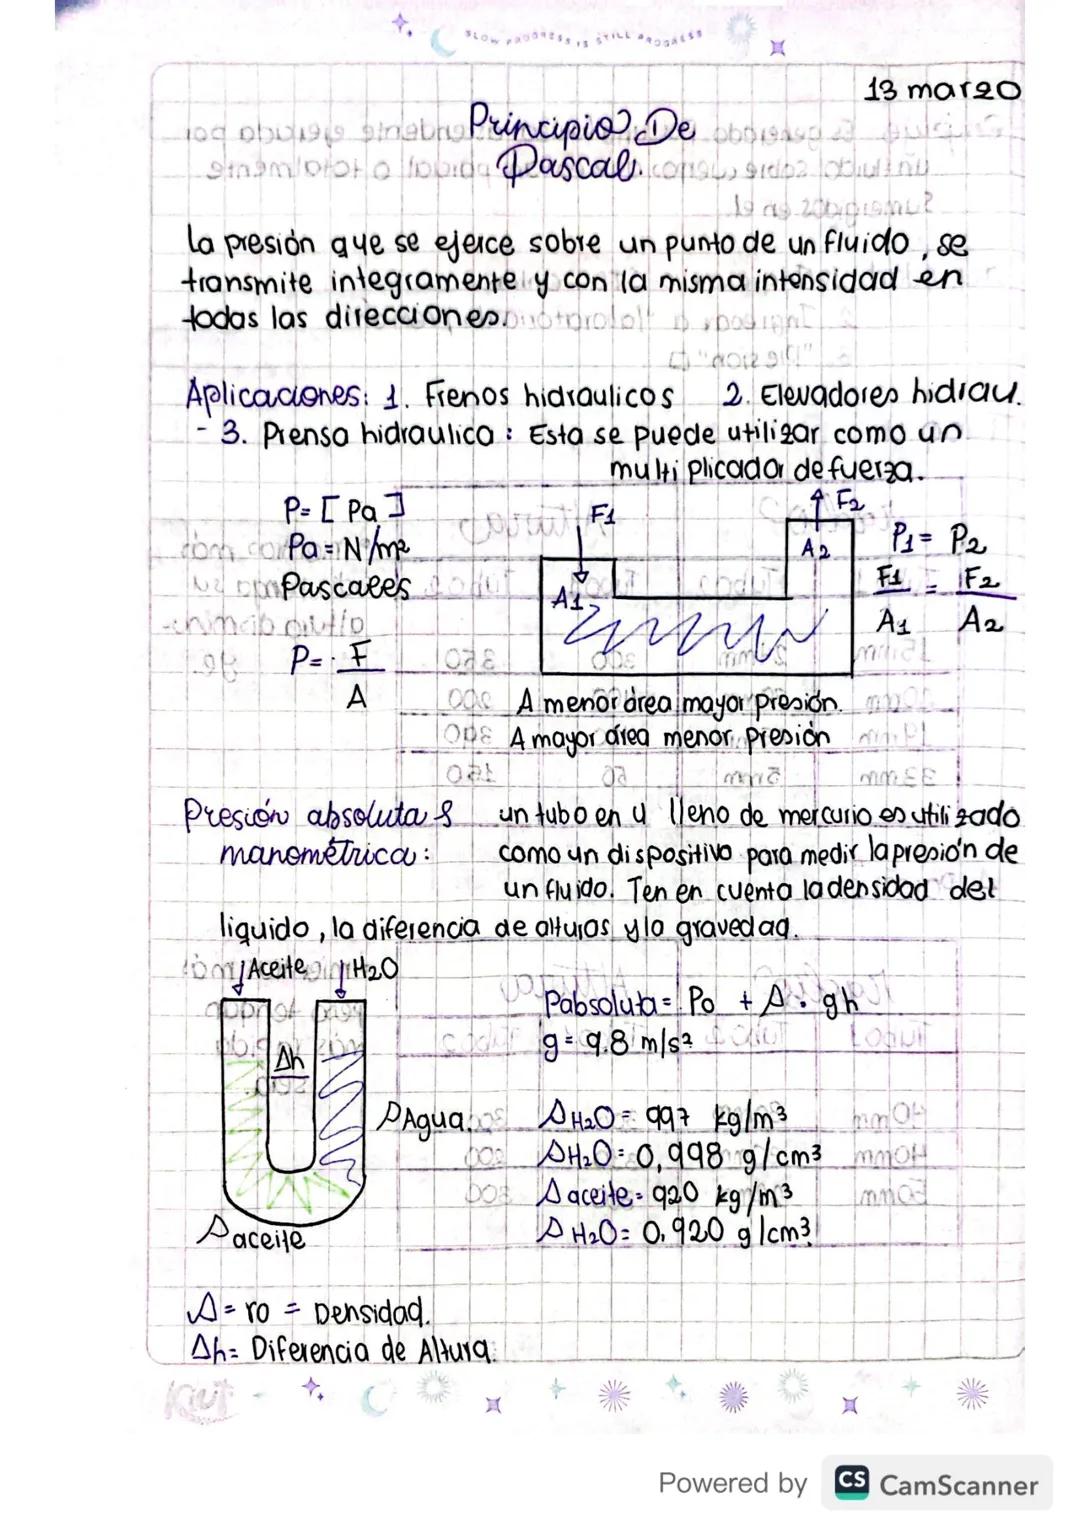 SLOW PROGRESS IS STILL PROGRESS
13 marzo
Principio De
Pascal.
La presión que se ejerce sobre un punto de un fluido, se
transmite integramente y con la misma intensidad en
todas las direcciones.
Aplicaciones: 1. Frenos hidraulicos 2. Elevadores hidrau.
- 3. Prensa hidraulica: Esta se puede utilizar como un
multiplicador de fuerza.
P= [Pa]
Pa=N/m²
Pascales
P= F
A
F1
F2
A1
A2
P1= P2
F1 = F2
A1 A2
A menor área mayor presión.
A mayor área menor presión
Presión absoluta &
manométrica:
un tubo en u lleno de mercurio es utilizado
como un dispositivo para medir la presión de
un fluido. Ten en cuenta la densidad del
liquido, la diferencia de alturas y la gravedad.
Aceite
H2O
Δh
ΔAgua
Δaceite
Pabsoluta= Po + Δ · gh
g= 9.8 m/s²
ΔH2O= 997 kg/m3
ΔH2O= 0,998 g/cm3
Δaceite= 920 kg/m3
ΔH2O= 0.920 g/cm3
Δ= ro = Densidad.
Δh= Diferencia de Altura.
Powered by CS CamScanner